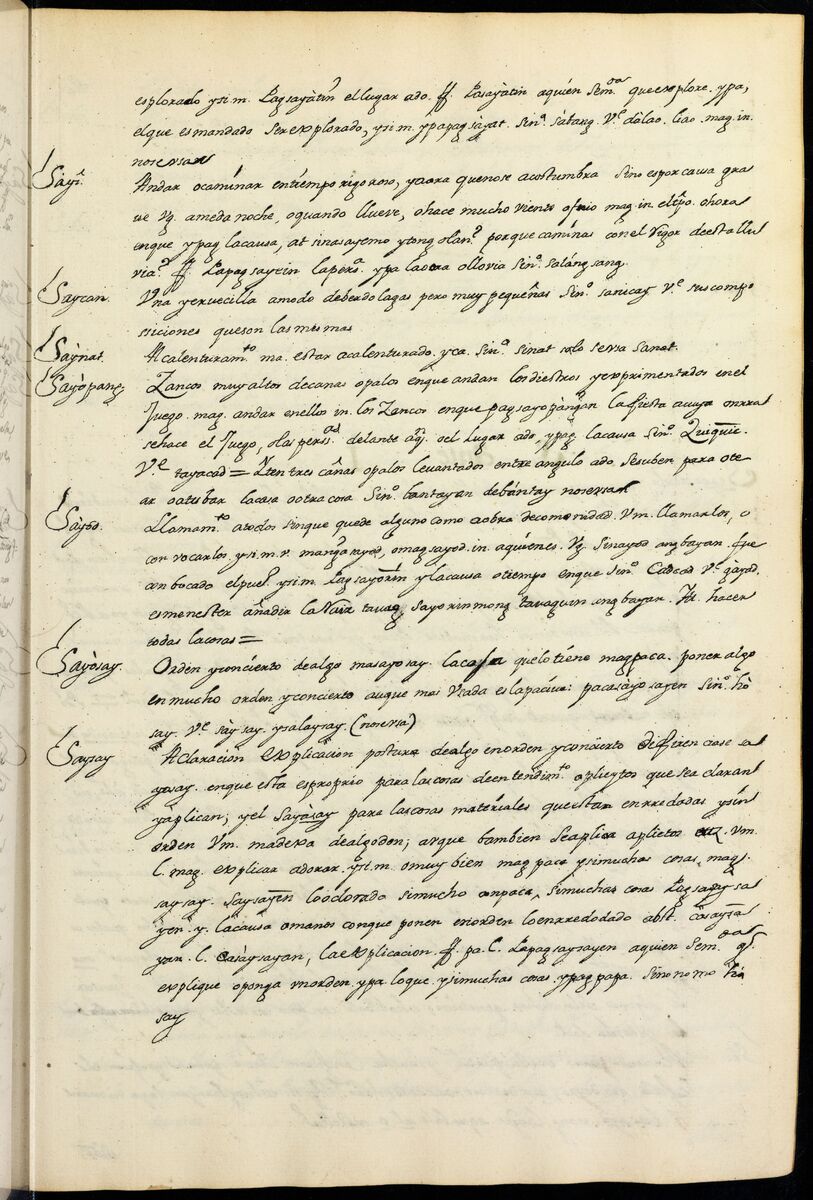 esplorado y si.m. Pagsayàtin el lugar ado. ff. Pasayàtin aquien Sem.da que explore. ypa,
el que es mandado ser explorado, y si.m. ypapag sàyat. Sin.o sàbang. V.e dàlao. liao. mag. in.
no se usa
Sayi. Andar ocaminar entiempo rigoroso, yaora quenose acostumbra Sino espor causa gra
ue Vg. ameda noche, oquando llueve, ohace mucho viento ofrio mag. in. el tpo. ohora
enque ypag lacausa, at sinasayemo ytong olan? porque caminas con el Rigor deesta llu
via? ff. Papag sayein lapers.a ypa laora ollovia Sin.o Salángsang.
Saycan. Vna yervecilla amodo deberdolagas pero muy pequeñas Sin.o sanicay V.e sus compo
siciones queson las mismas
Sàynat. Acalenturam.to ma. estar acalenturado. yca. Sin.o sinat solo se usa Sanat.
Sayòpang Zancos muy altos decanas opalos enque andan losdiestros yexprimentados en el
Juego. mag. andar enellos in. los Zancos enque pagsayopàngan la fiesta acuya onrra
sehace el Juego, olas perss.as delante q. ocl lugar ado, ypag lacausa Sin.o
V.e tayacad = Yten tres cañas opalos levantados entre angulo ado sesuben para ote
ar oatisbar lacasa ootra cosa Sin.o bantayan debántay no se usa
Sàyod. Llamam.to atodos sinque quede alguno como aobra decomunidad. Vm. llamarlos, o
convocarlos y si.m. v. mangaràyod, omagsayod. in. aquienes. Vg. Sinayod ang bayan. fue
conbocado el pue.o y si.m. Pagsayorin y lacausa otiempo enque Sin.o Caòcàd V.e gàyod.
es menester añadir la Naiz tavag, sayorin mong tavaguin ang bayan. It. hacer
todas lacosas =
Sayòsay. Orden y concierto dealgo masayosay. lacasa quelo tiene magpaca. poner algo
en mucho orden y concierto auque mas Vsada es lapasiva: pacasayosayen Sin.o hò
say. V.e sàysay. y salaysay. (no se usa)
Saysay Aclaracion explicacion postura dealgo enorden yconcierto difirenciase sa
yosay. enque esta es proprio para lascosas deentendim.to oplieytos que sea claran
yàplican; y el Sayòsay para lascosas materiales que estan enrredadas y sin
orden Vm. madexa dealgodon; auque tambien Seaplica aplietos etz. Vm.
l. mag. explicar adorar. y si.m. omuy bien magpaca y simuchas cosas, mags.
saysay. Saysayen looclorado simucho onpaca, simuchas cosas Pagsaysa
yen. y. lacausa omanos conque ponen enorden loenrredodado abst. casaysa
yan. l. casàysayan, laexplicacion. ff. pa. l. Papagsaysayen aquien Sem.da q.
explique oponga vnorden. ypa loque y simuchas cosas ypagpapa. Sinonomo hò
say